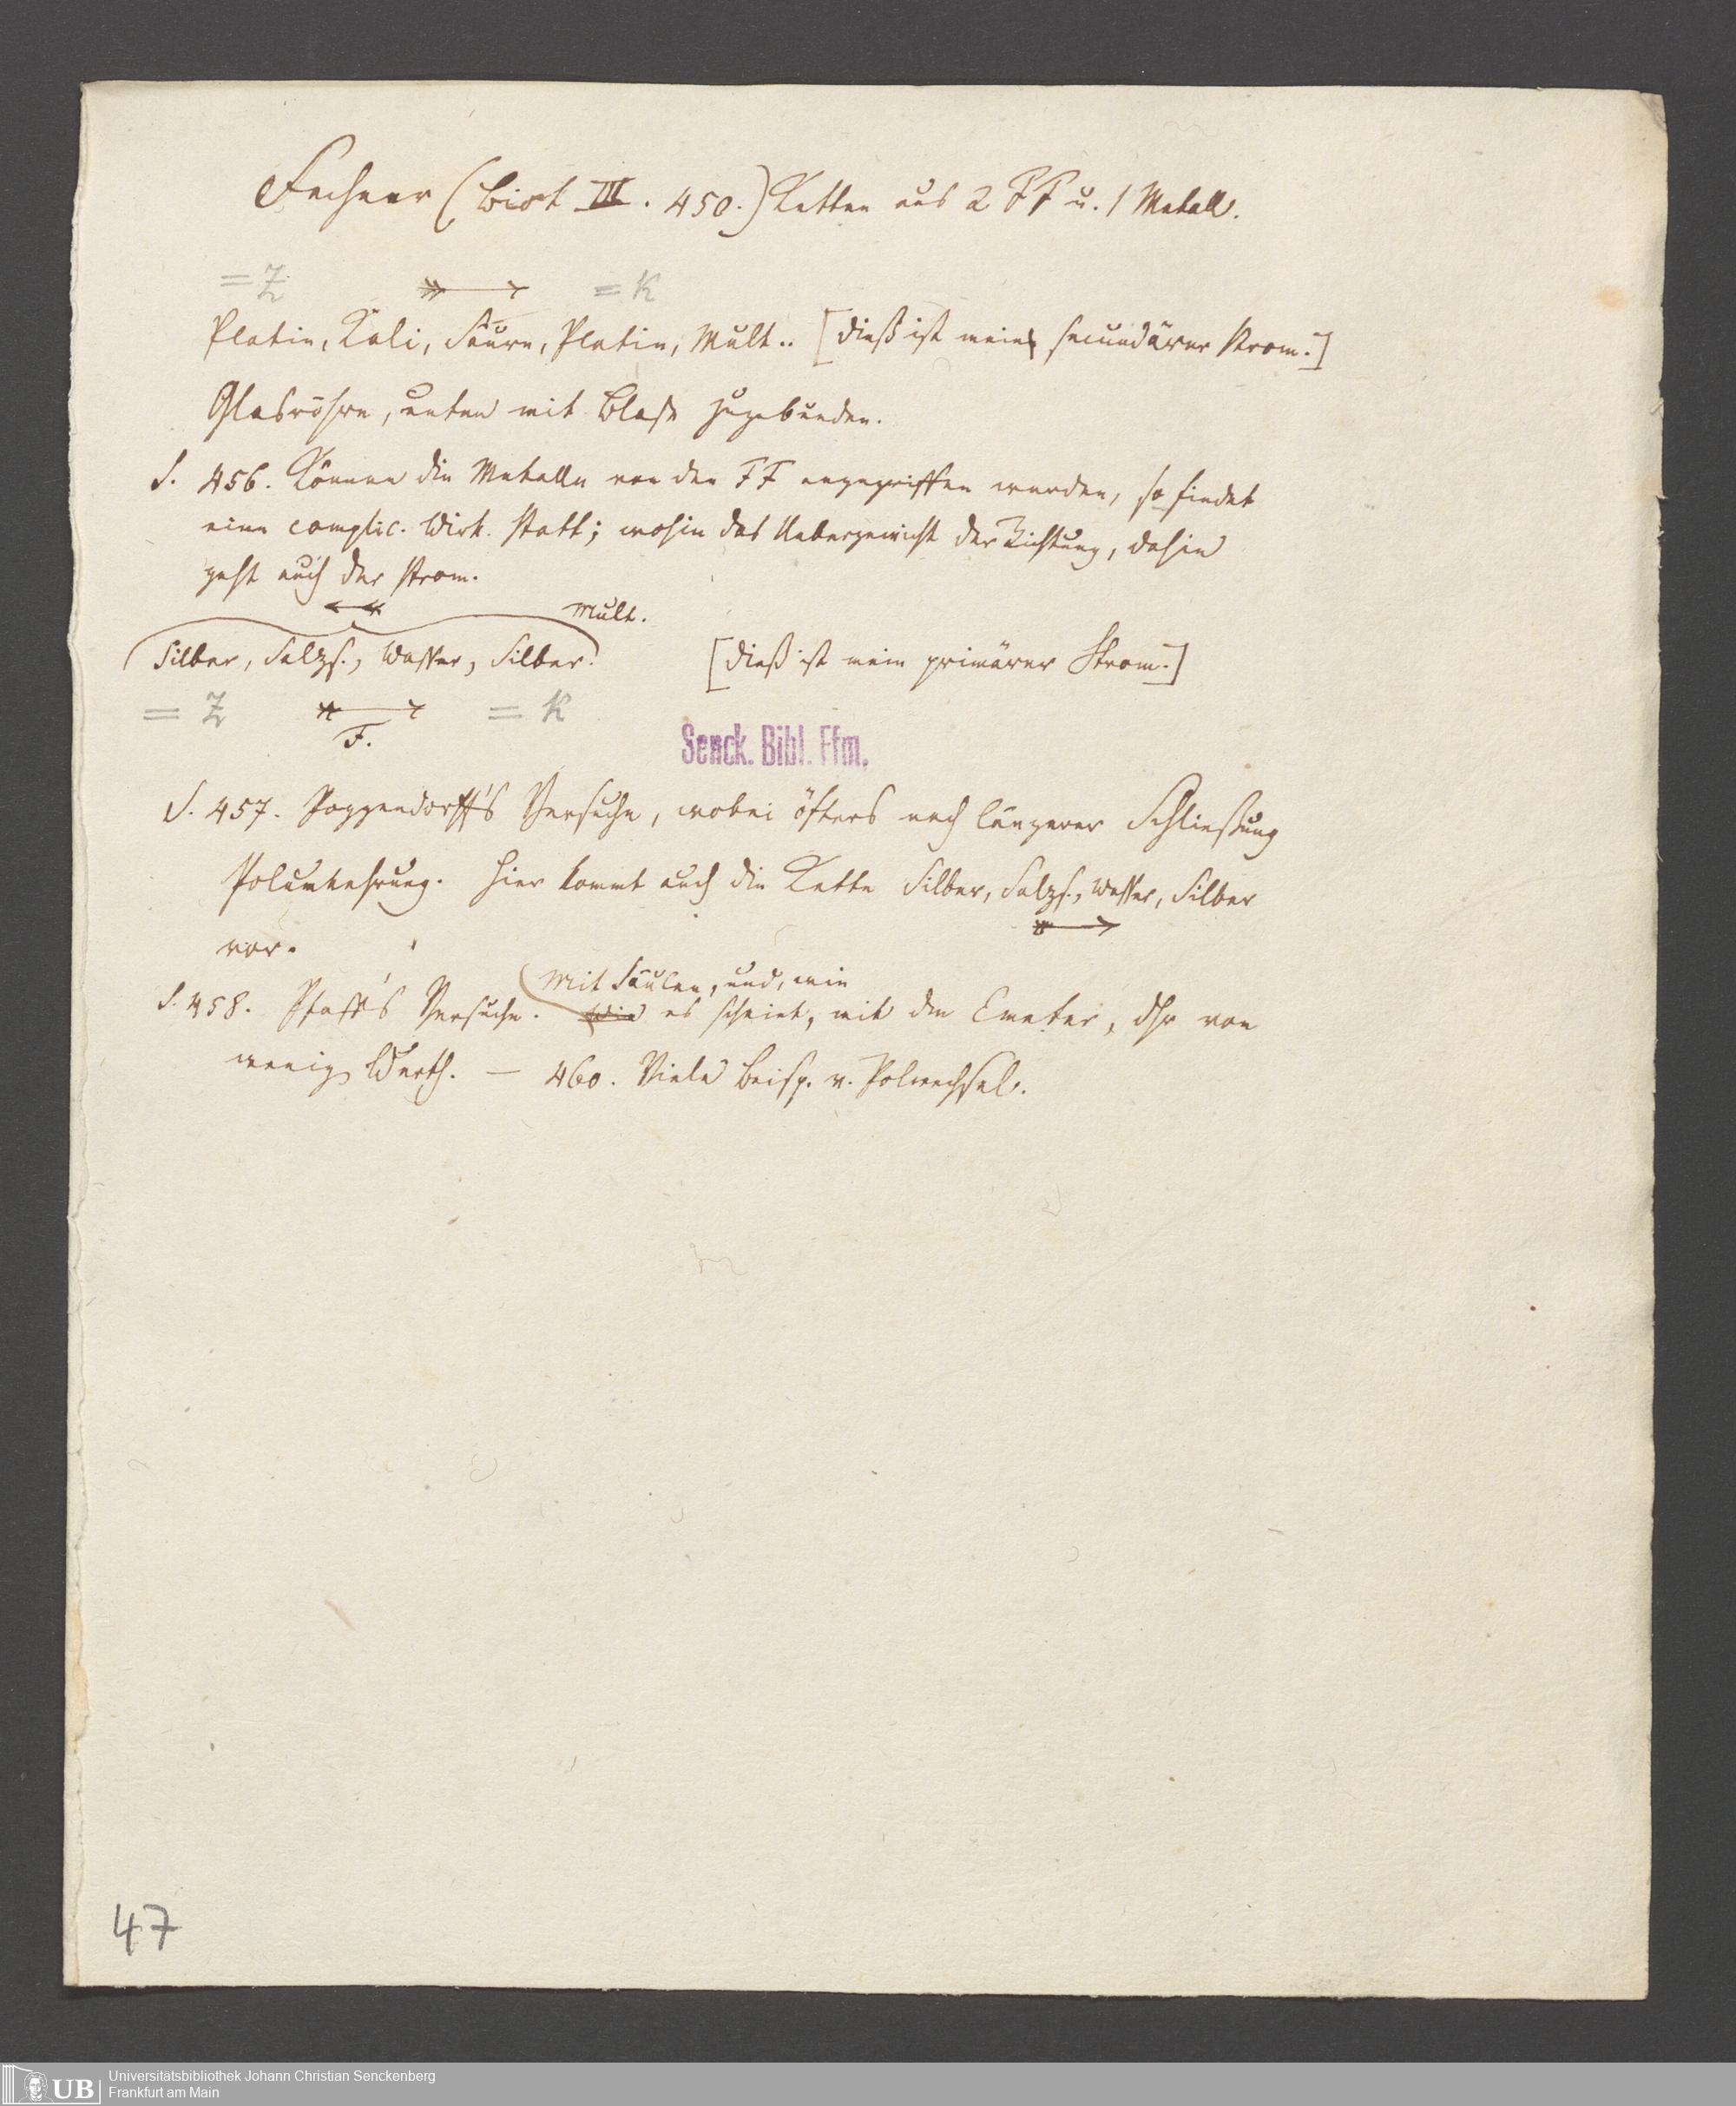 Fechner (Biot III. 450.) Ketten aus 2 FF u. 1 Metall.
= Z = K
Platin, Kali, Säure, Platin, Mult.. [dieß ist mein secundärer Strom.]
Glasröhre, unten mit Blase zugebunden.
S. 456. Können die Metalle von den FF angegriffen werden, so findet
eine complic. Wirk. statt; wohin das Uebergewicht der Richtung, dahin
geht auch der Strom.
Mult.
Silber, Salzs., Wasser, Silber. [dieß ist mein primärer Strom.]
= Z = K
F.
Senck. Bibl. Ffm.
S. 457. Poggendorff's Versuche, wobei öfters nach längerer Schließung
Polumkehrung. Hier kommt auch die Kette Silber, Salzs., Wasser, Silber
vor.
Mit Säulen, und, wie
S. 458. Pfaff's Versuche. Wie es scheint, mit dem , dhr von
wenig Werth. — 460. Viele Beisp. v. Polwechsel.
47
UB
Universitätsbibliothek Johann Christian Senckenberg
Frankfurt am Main